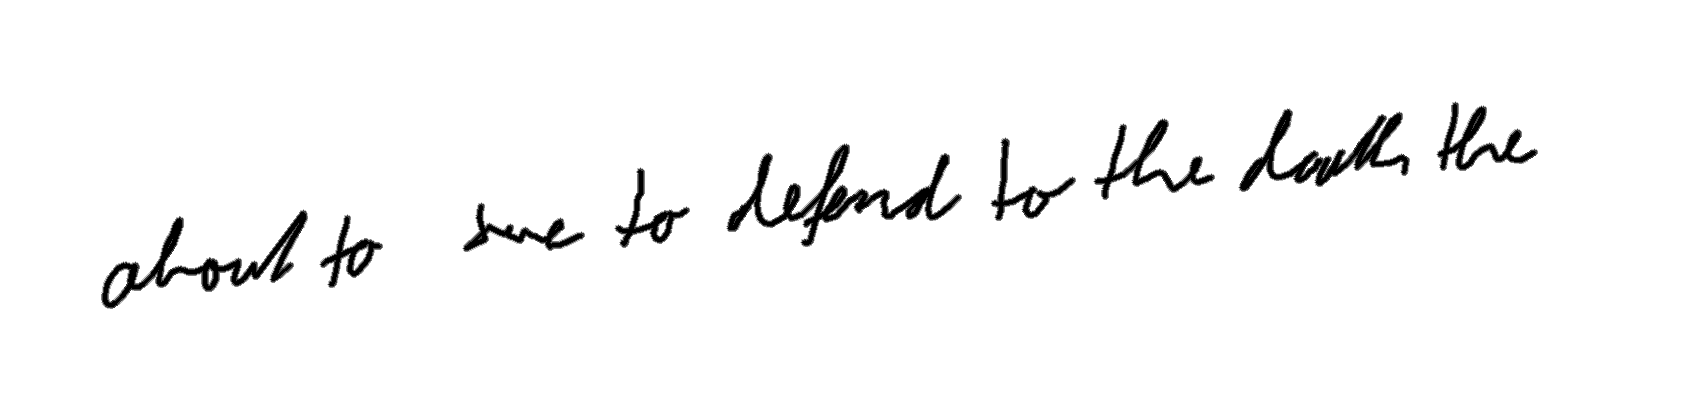 about to sue to defend to the death the